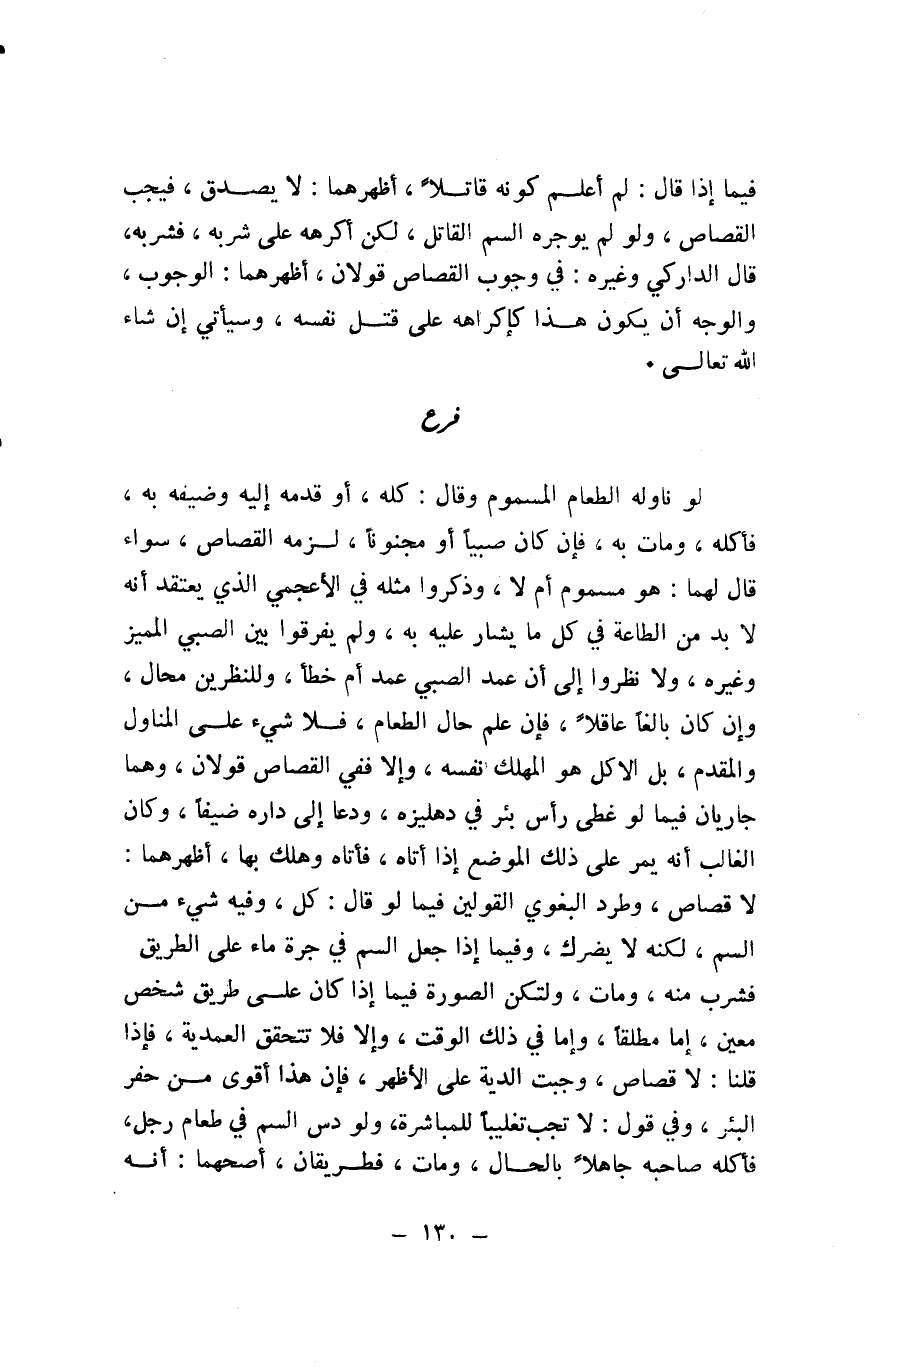 فيما إذا قال : لم أعلم كونه قاتلاً ، أظهرهما : لا يصدق ، فيجب
القصاص ، ولو لم يوجره السم القاتل ، لكن أكرهه على شربه ، فشربه،
قال الداركي وغيره : في وجوب القصاص قولان ، أظهرهما : الوجوب ،
والوجه أن يكون هذا كإكراهه على قتل نفسه ، وسيأتي إن شاء
الله تعالى .
فرع
لو ناوله الطعام المسموم وقال : كله ، أو قدمه إليه وضيفه به ،
فأكله ، ومات به ، فإن كان صبياً أو مجنوناً ، لزمه القصاص ، سواء
قال لهما : هو مسموم أم لا ، وذكروا مثله في الأعجمي الذي يعتقد أنه
لا بد من الطاعة في كل ما يشار عليه به ، ولم يفرقوا بين الصبي المميز
وغيره ، ولا نظروا إلى أن عمد الصبي عمد أم خطأ ، وللنظرين محال ،
وإن كان بالغاً عاقلاً ، فإن علم حال الطعام ، فلا شيء على المناول
والمقدم ، بل الآكل هو المهلك نفسه ، وإلا ففي القصاص قولان ، وهما
جاريان فيما لو غطى رأس بئر في دهليزه ، ودعا إلى داره ضيفاً ، وكان
الغالب أنه يمر على ذلك الموضع إذا أتاه ، فأتاه وهلك بها ، أظهرهما :
لا قصاص ، وطرد البغوي القولين فيما لو قال : كل ، وفيه شيء من
السم ، لكنه لا يضرك ، وفيما إذا جعل السم في جرة ماء على الطريق
فشرب منه ، ومات ، ولتكن الصورة فيما إذا كان على طريق شخص
معين ، إما مطلقاً ، وإما في ذلك الوقت ، وإلا فلا تتحقق العمدية ، فإذا
قلنا : لا قصاص ، وجبت الدية على الأظهر ، فإن هذا أقوى من حفر
البئر ، وفي قول : لا تجب تغليباً للمباشرة، ولو دس السم في طعام رجل،
فأكله صاحبه جاهلاً بالحال ، ومات ، فطريقان ، أصحهما : أنه
– ١٣٠ –